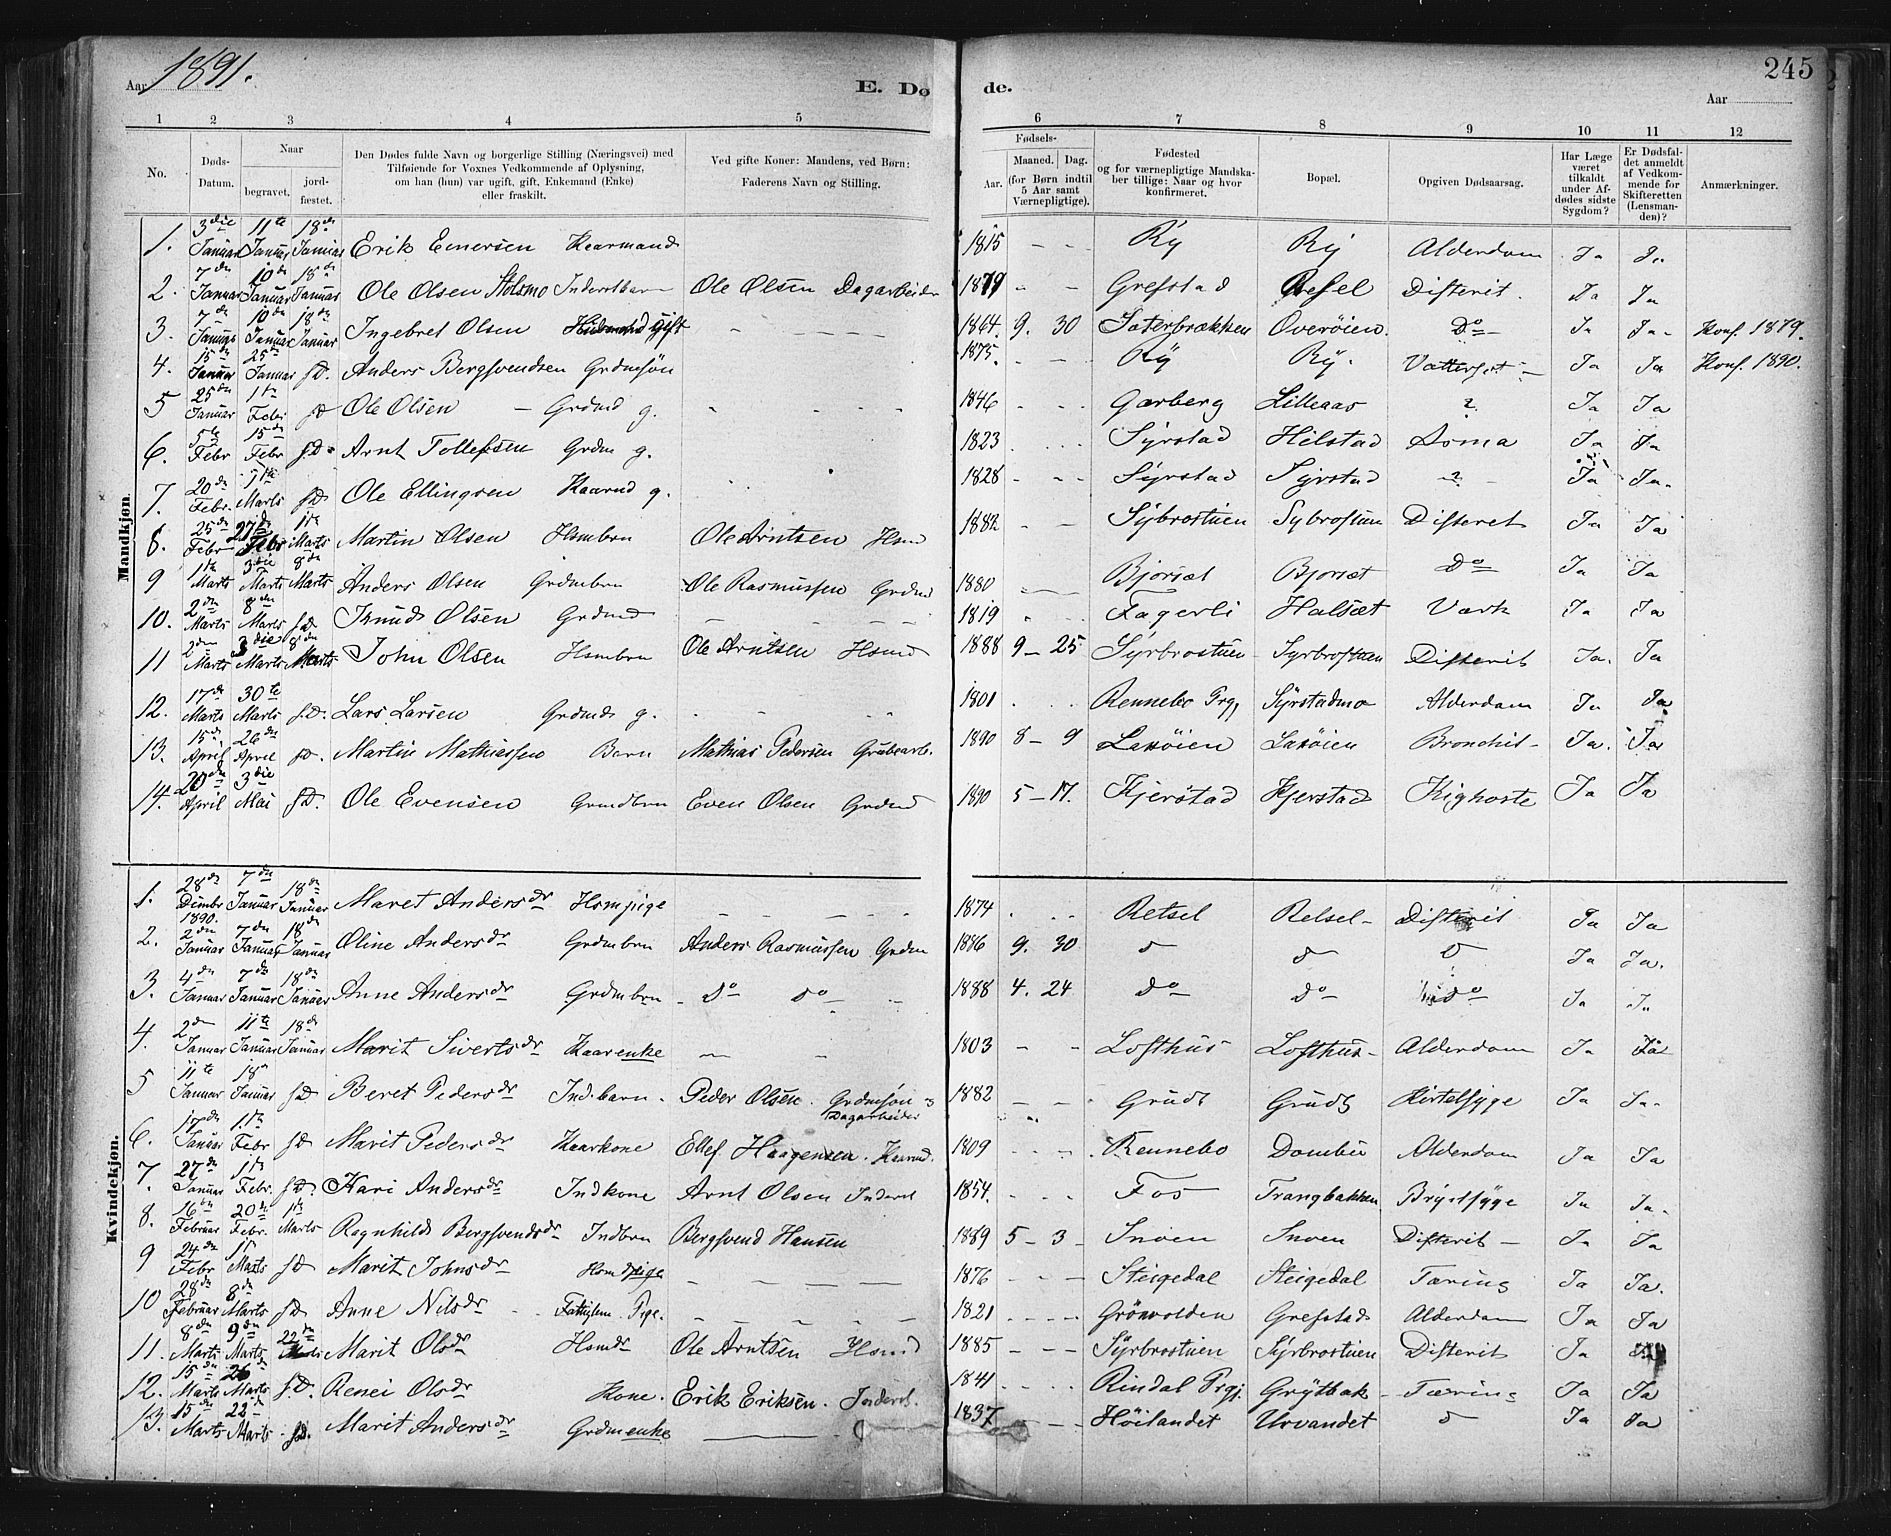 Aar 1891.
E. Døde.
245
Aar
1 2 3 4 5 6 7 8 9 10 11 12
No.
Døds-Datum.
Naar
begravet.
jord-fæstet.
Den Dødes fulde Navn og borgerlige Stilling (Næringsvei) med Tilføiende for Voxnes Vedkommende af Oplysning, om han (hun) var ugift, gift, Enkemand (Enke) eller fraskilt.
Ved gifte Koner: Mandens, ved Børn: Faderens Navn og Stilling.
Fødsels-
Aar.
Maaned. Dag. (for Børn indtil 5 Aar samt Værnepligtige).
Fødested og for værnepligtige Mandskaber tillige: Naar og hvor konfirmeret.
Bopæl.
Opgiven Dødsaarsag.
Har Læge været tilkaldt under Afdødes sidste Sygdom?
Er Dødsfaldet anmeldt af Vedkommende for Skifteretten (Lensmanden)?
Anmærkninger.
Mandkjøn.
1. 3die Januar 11te Januar 18de Januar Erik Einersen Kaarmand 1815 - - - Ry Ry Alderdom Ja Ja
2. 7de Januar 10de Januar 18de Januar Ole Olsen Stolsmo Inderstbarn Ole Olsen Dagarbeider 1879 - - Grefstad Resel Difterit. Ja Ja
3. 7de Januar 10de Januar 18de Januar Ingebret Olsen gift - - - - 1864. 9. 30 Sæterbrækken Overøien. Do Ja Ja - Konf. 1879.
4. 15de Januar 25de Januar f.D. Anders Bergsvendsen Grdmsøn 1875. - - Ry Ry. Ja Ja Konf. 1890.
5 25de Januar 1ste Febr f.D. Ole Olsen - Grdmd g. 1846 - - - Garberg Lilleaas ? Ja Ja
6. 5te Febr 15de Febr f.D. Arnt Tollefsen Grdm g. 1823 Syrstad Hilstad Asma Ja Ja
7. 20de Febr. 1ste Marts f.D. Ole Ellingsen Kaarmd g. 1828 - - - Syrstad Syrstad ? - Ja Ja.
8. 25de Febr 27de Febr 1ste Marts Martin Olsen Hsmbrn Ole Arntsen Hsmd 1882 - - Sybrostuen Sybrostuen Difterit Ja Ja
9 1ste Marts 3die Marts 8de Marts Anders Olsen Grdmbrn Ole Rasmussen Grdmd 1880 Bjørset Bjorset Do Ja Ja
10. 2den Marts 8de Marts f.D. Knud Olsen Grdmd - - - - 1819 Fagerli Halsæt Værk Ja Ja
11 2den Marts 3die Marts 8de Marts John Olsen Hsmbrn Ole Arntsen Hsmd 1888 9 - 25 Syrbrostuen Syrbrostuen Difterit Ja. Ja
12. 17de Marts 30te Marts f.D. Lars Larsen Grdmd g. 1801 Rennebo Prg, Syrstadmo Alderdom Ja Ja
13. 15de April 26de April f.D. Martin Mathiassen Barn Mathias Pedersen Grubearb. 1890 8 - 9 Laxøien Laxøien Bronchit - Ja. Ja
14. 20de April 3die Mai f.D. Ole Evensen Grmdbrn Even Olsen Grdmd 1890 5 - 17. Kjerstad Kjerstad Kighoste Ja Ja
Kvindekjøn.
1. 28de Dcmbr 1890. 7de Januar 18de Januar Maret Andersdr Hsmpige - - - - 1874 Retsel Relsel - Difterit Ja Ja
2. 2den Januar 7de Januar 18de Januar Oline Andersdr Grdmbrn Anders Rasmussen Grdm 1886 9. 30 Ja Ja.
3. 4de Januar 7de Januar 18de Januar Anne Andersdr Grdmbrn - Do do - 1888 4. 24 Do Do Do Ja Ja
4. 2den Januar 11te Januar 18de Januar Marit Sivertsdr Kaarenke - - 1803 - - Lofthus Lofthus - Alderdom Ja
5 11te Januar 18de Januar f.D. Beret Pedersdr Ind.barn. Peder Olsen. Grdmsøn og Dagarbeider 1882 - - Grudt Grudt Kirtelsyge Ja Ja.
6. 17de Januar 1ste Febr f.D. Marit Pedersdr Kaarkone Ellef Haagensen. Kaarmd. 1809 Rennebo Dombu Alderdom Ja Ja
7. 27de Januar 1ste Febr. f.D. Kari Andersdr Indkone Arnt Olsen Inderst 1854. Fos Trangbakken Brystsyge Ja Ja.
8. 16de Februar 20de Febr. 1ste Marts Ragnhild Bergsvendsdr Indbrn Bergsvend Hansen 1889 5 - 3 - Snoen Snoen Difterit - Ja Ja
9 24de Febr 1ste Marts f.D. Marit Johnsdr Hsmdpige - - - - 1876 - - - Steigedal Steigedal Tæring Ja Ja.
10 28de Februar 8de Marts f.D. Anne Nilsdr Fattiglem Pige. - - - - 1821 Grönvolden Grefstad Alderdom Ja Ja
11. 8de Marts 9de Marts 22de Marit Olsdr Hsmdr Ole Arntsen Hsmd 1885 - - - Syrbrostuen Syrbrostuen Difterit Ja
12. 15de Marts 26de Marts f.D. Renei Olsdr Kone. Erik Eriksen. Inderst. 1841 Rindal Prgj. Grytbak - Tæring Ja Ja
13. 15de Marts 22de Marts f.D. Marit Andersdr Grdmenke 1837 - - Höilandet Urvandet Ja Ja